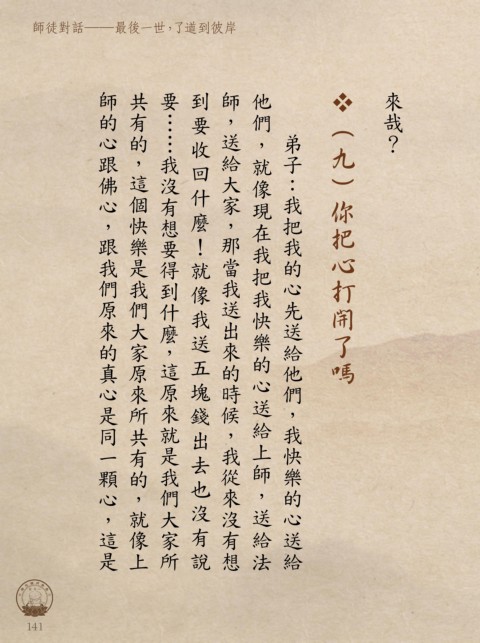 師徒對話——最後一世，了道到彼岸
來哉？
❖（九）你把心打開了嗎
弟子：我把我的心先送給他們，我快樂的心送給
他們，就像現在我把我快樂的心送給上師，送給法
師，送給大家，那當我送出來的時候，我從來沒有想
到要收回什麼！就像我送五塊錢出去也沒有說
要……我沒有想要得到什麼，這原來就是我們大家所
共有的，這個快樂是我們大家原來所共有的，就像上
師的心跟佛心，跟我們原來的真心是同一顆心，這是
141